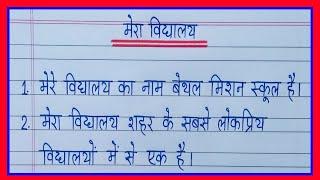 मेरा विद्यालय
1. मेरे विद्यालय का नाम बेथल मिशन स्कूल है।
2. मेरा विद्यालय शहर के सबसे लोकप्रिय
विद्यालयों में से एक है।